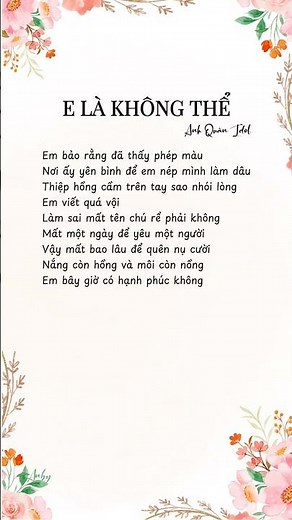 E LÀ KHÔNG THỂ
Anh Quân Idol
Em bảo rằng đã thấy phép màu
Nơi ấy yên bình để em nép mình làm dâu
Thiệp hồng cầm trên tay sao nhói lòng
Em viết quá vội
Làm sai mất tên chú rể phải không
Mất một ngày để yêu một người
Vậy mất bao lâu để quên nụ cười
Nắng còn hồng và môi còn nồng
Em bây giờ có hạnh phúc không